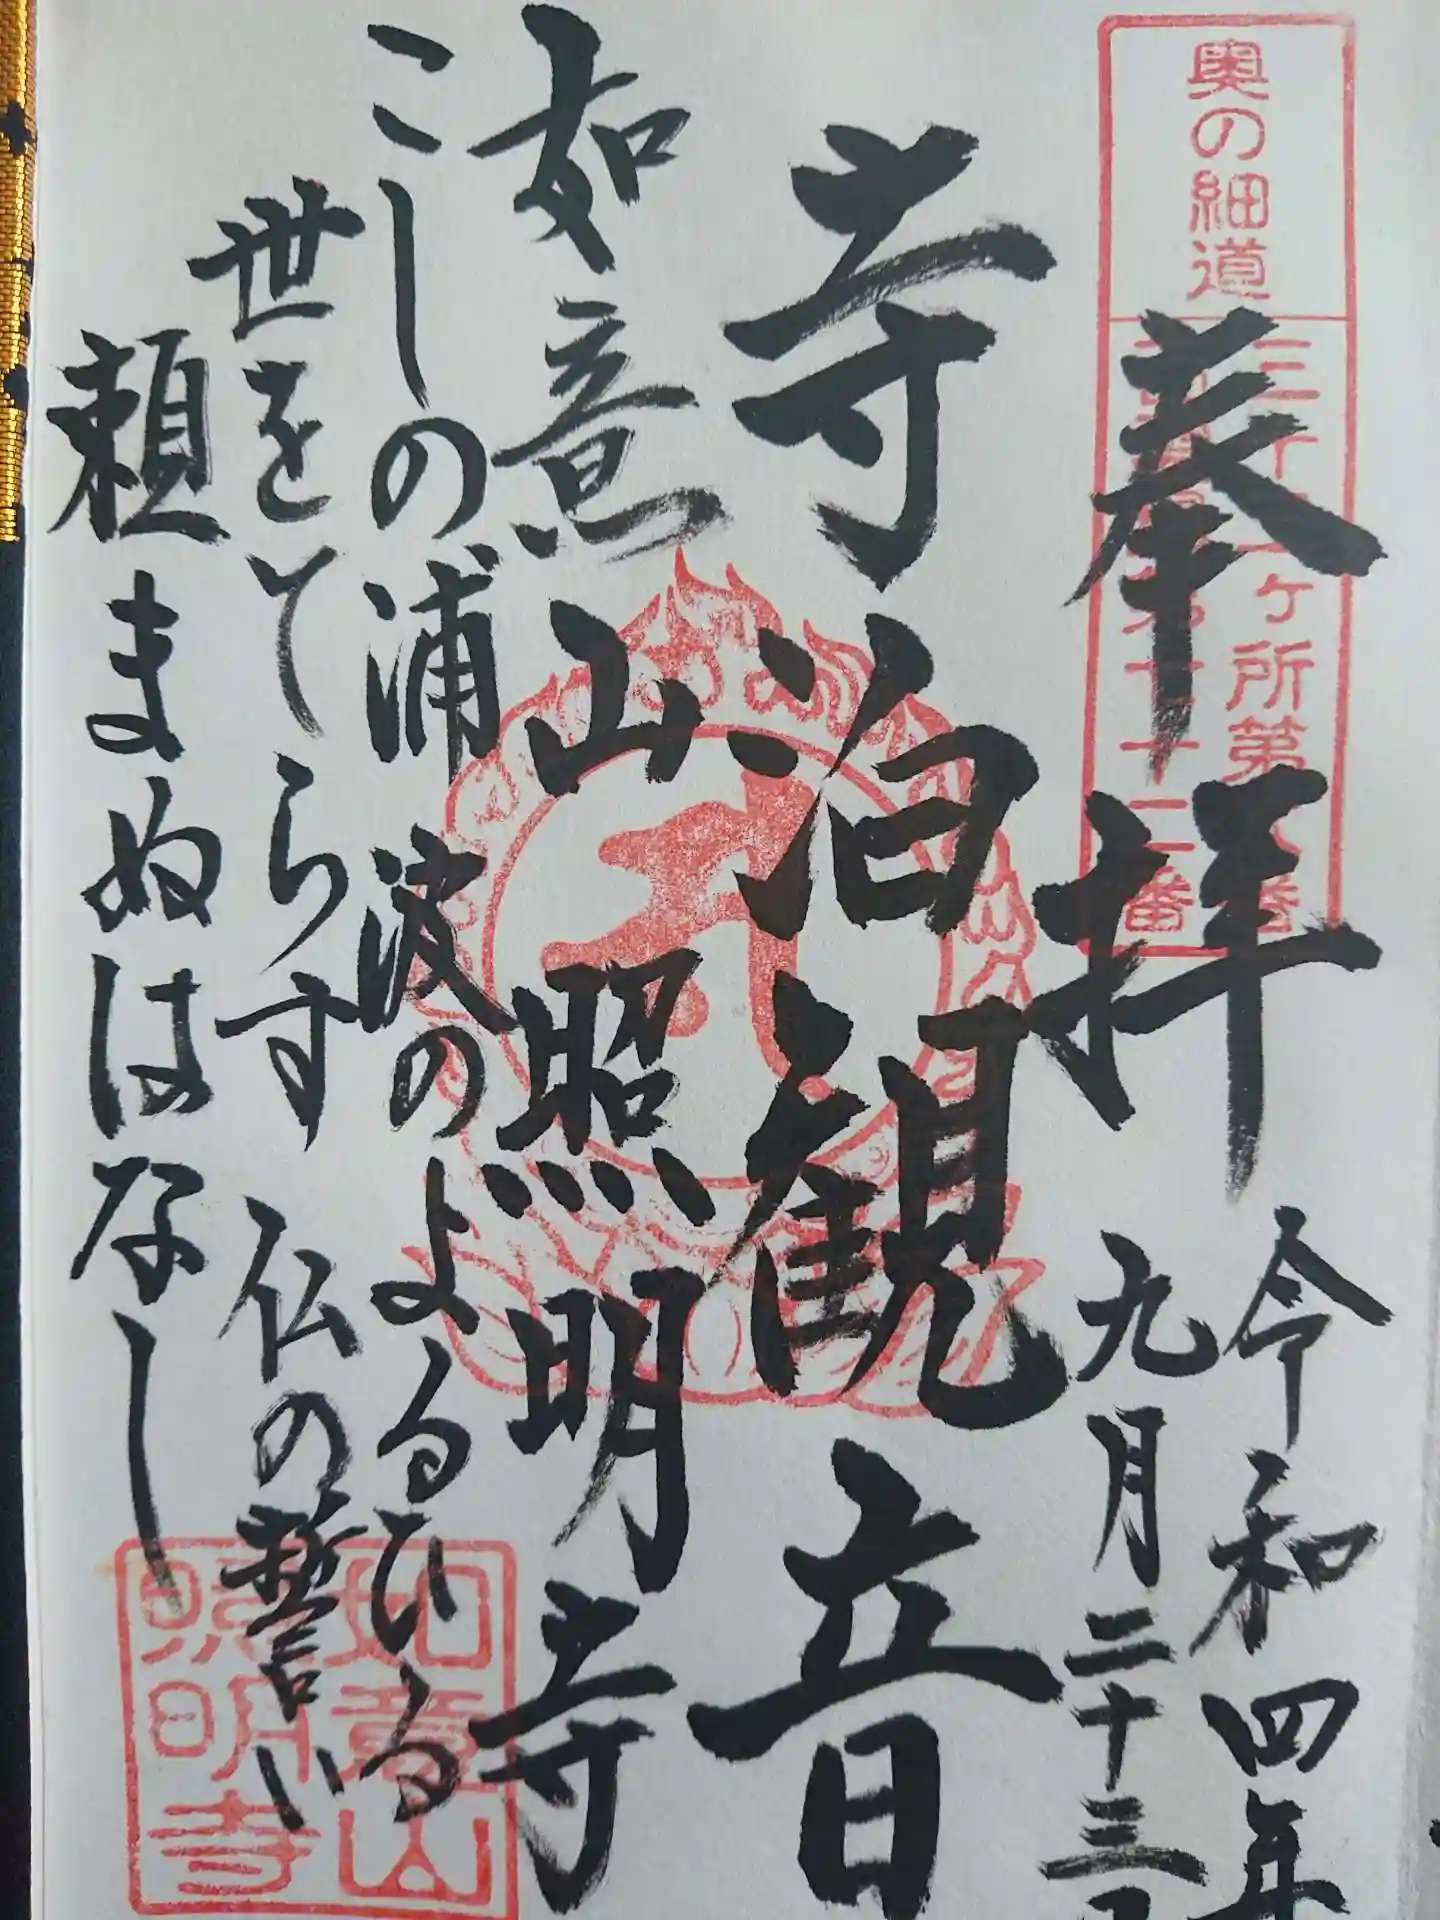 奥の細道
奉拝
令和四年
九月二十三日
寺泊観音
如意山照明寺
こしの浦波のよるひる
世をてらす仏の誓い
頼まぬはなし
如意山
照明寺